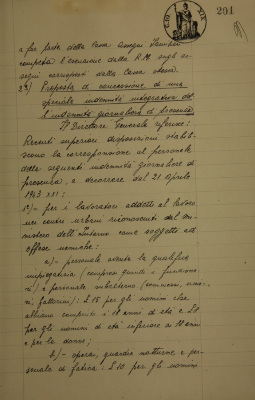 291
a far parte della Cassa Assegni Familiari
competa l'esenzione dalla R.M. sugli as-
segni corrisposti dalla Cassa stessa.
2°) Proposta di concessione di una
speciale indennità integrativa del-
l'indennità giornaliera di presenza
Il Direttore Generale riferisce:
Recenti superiori disposizioni stabili-
scono la corresponsione al personale
delle seguenti indennità giornaliere di
presenza, a decorrere dal 21 Aprile
1943 XXI:
1°) - per i lavoratori addetti al lavoro
nei centri urbani riconosciuti dal Mi-
nistero dell'Interno come soggetti ad
offese nemiche:
a) - personale avente la qualifica
impiegatizia (compresi quindi i funziona-
ri) e personale subalterno (commessi, uscie-
ri, fattorini): £ 15 per gli uomini che
abbiano compiuto i 18 anni di età e £ 8
per gli uomini di età inferiore ai 18 anni
e per le donne;
b) - operai, guardie notturne e per-
sonale di fatica: £ 10 per gli uomini